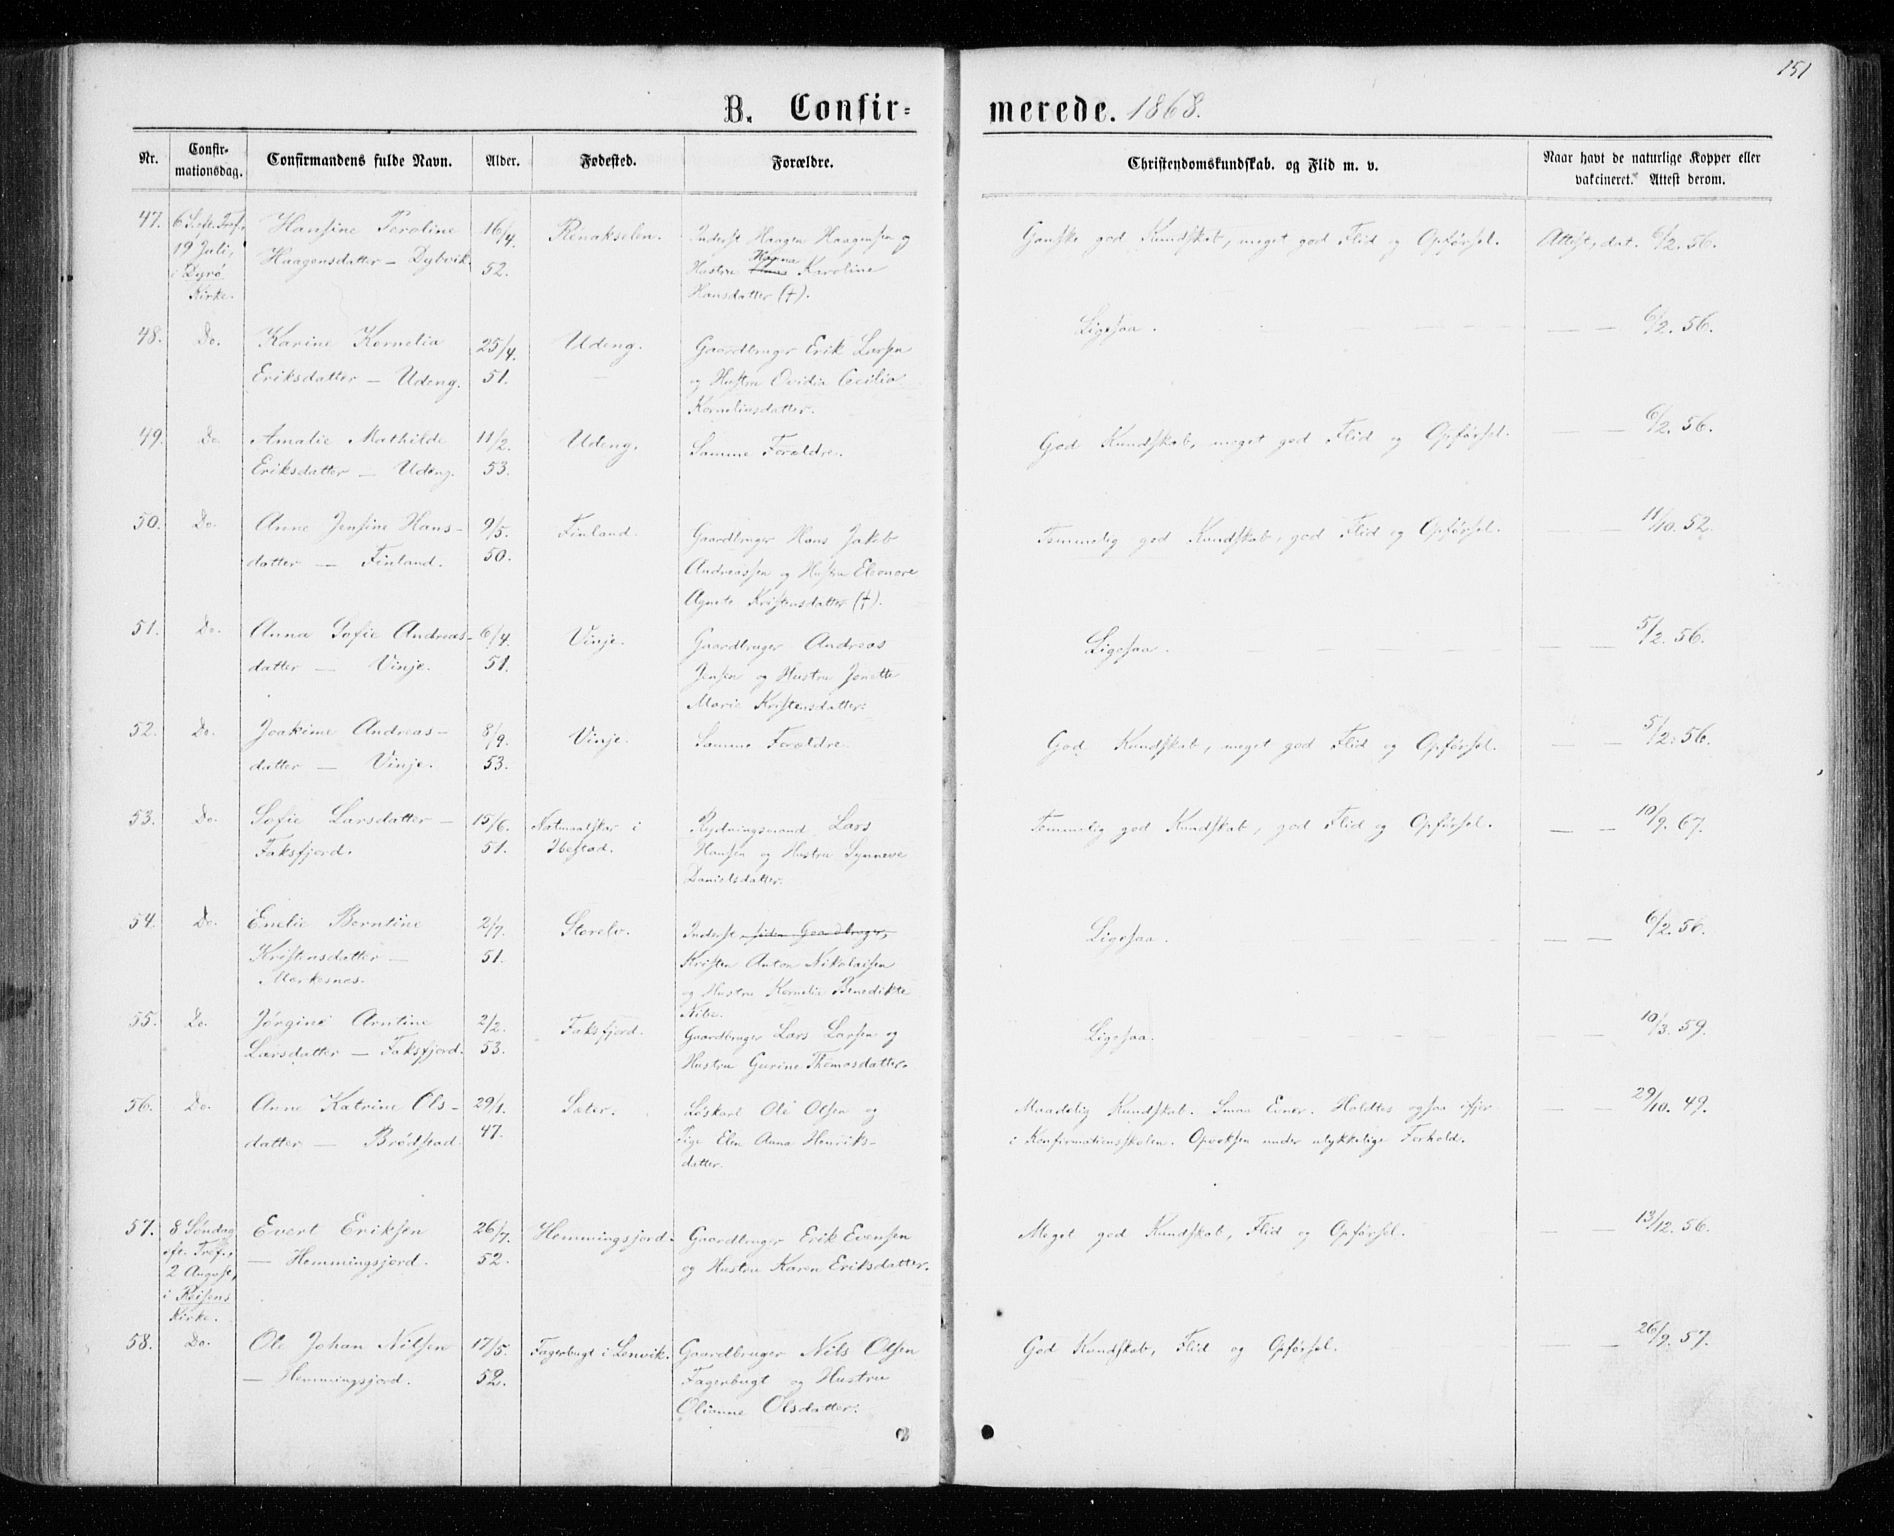 151
B. Confir=
merede. 1868.
Nr.
Confir-
mationsdag.
Confirmandens fulde Navn.
Alder.
Fødested.
Forældre.
Christendomskundskab. og Flid m. v.
Naar havt de naturlige Kopper eller
vakcineret. Attest derom.
47. 6 S. eft. Tref. Hansine Peroline 16/4. Renakselen. Inderst Haagen Haagensen og Ganske god Kundskab, meget god Flid og Opførsel. Attest, dat. 6/2. 56.
19 Juli, Haagensdatter — Dybvik 52. Hustru Karoline
i Dyrø Hansdatter (†).
Kirke.
48. Do. Karine Kornelia 25/4. Udeng. Gaardbruger Erik Larsen Ligesaa. — — 6/2. 56.
Eriksdatter — Udeng. 51. og Hustru Ovidia Cecilia
Korneliusdatter.
49. Do. Amalie Mathilde 11/2. Udeng. Samme Forældre. God Kundskab, meget god Flid og Opførsel. — — 6/2. 56.
Eriksdatter — Udeng. 53.
50. Do. Anne Jensine Hans- 9/5. Finland. Gaardbruger Hans Jakob Temmelig god Kundskab, god Flid og Opførsel. — — 11/10. 52.
datter — Finland. 50. Andreassen og Hustru Eleonore
Agnete Kristensdatter (†).
51. Do. Anna Sofie Andreas- 6/4. Vinje. Gaardbruger Andreas Ligesaa. — — 5/2. 56.
datter — Vinje. 51. Jensen og Hustru Jonette
Marie Kristensdatter.
52. Do. Joakime Andreas- 8/9. Vinje. Samme Forældre. God Kundskab, meget god Flid og Opførsel. — — 5/2. 56.
datter — Vinje. 53.
53. Do. Sofie Larsdatter — 15/6. Natmaalskar i Rydningsmand Lars Temmelig god Kundskab, god Flid og Opførsel. — — 10/9. 67.
Faksfjord. 51. Ibestad. Hansen og Hustru Synneve
Danielsdatter.
54. Do. Emelie Berntine 2/7. Storelv. Inderst, siden Gaardbruger, Ligesaa. — — 6/2. 56.
Kristensdatter — 51. Kristen Anton Nikolaisen
Mærkesnes. og Hustru Kornelia Benedikte
Nilsd.
55. Do. Jørgine Arntine 2/2. Faksfjord. Gaardbruger Lars Larsen og Ligesaa. — — 10/3. 59.
Larsdatter — Faksfjord. 53. Hustru Gurine Thomasdatter.
56. Do. Anne Katrine Ols- 29/1. Sæter. Løskarl Ole Olsen og Maadelig Kundskab. Smaa Evner. Holdtes ogsaa ifjor — — 29/10. 49.
datter — Brødstad. 47. Pige Elen Anna Henriks- i Konfirmationsskolen. Opvoksen under ulykkelige Forhold.
datter.
57. 8 Søndag Evert Eriksen 26/7. Hemmingsjord. Gaardbruger Erik Evensen Meget god Kundskab, Flid og Opførsel. — — 13/12. 56.
eft. Tref., — Hemmingsjord. 52. og Hustru Karen Eriksdatter.
2 August,
i Reisens
Kirke.
58. Do. Ole Johan Nilsen 17/5. Fagerbugt i Lenvik. Gaardbruger Nils Olsen God Kundskab, Flid og Opførsel. — — 26/9. 57.
— Hemmingsjord. 52. Fagerbugt og Hustru
Olianne Olsdatter.